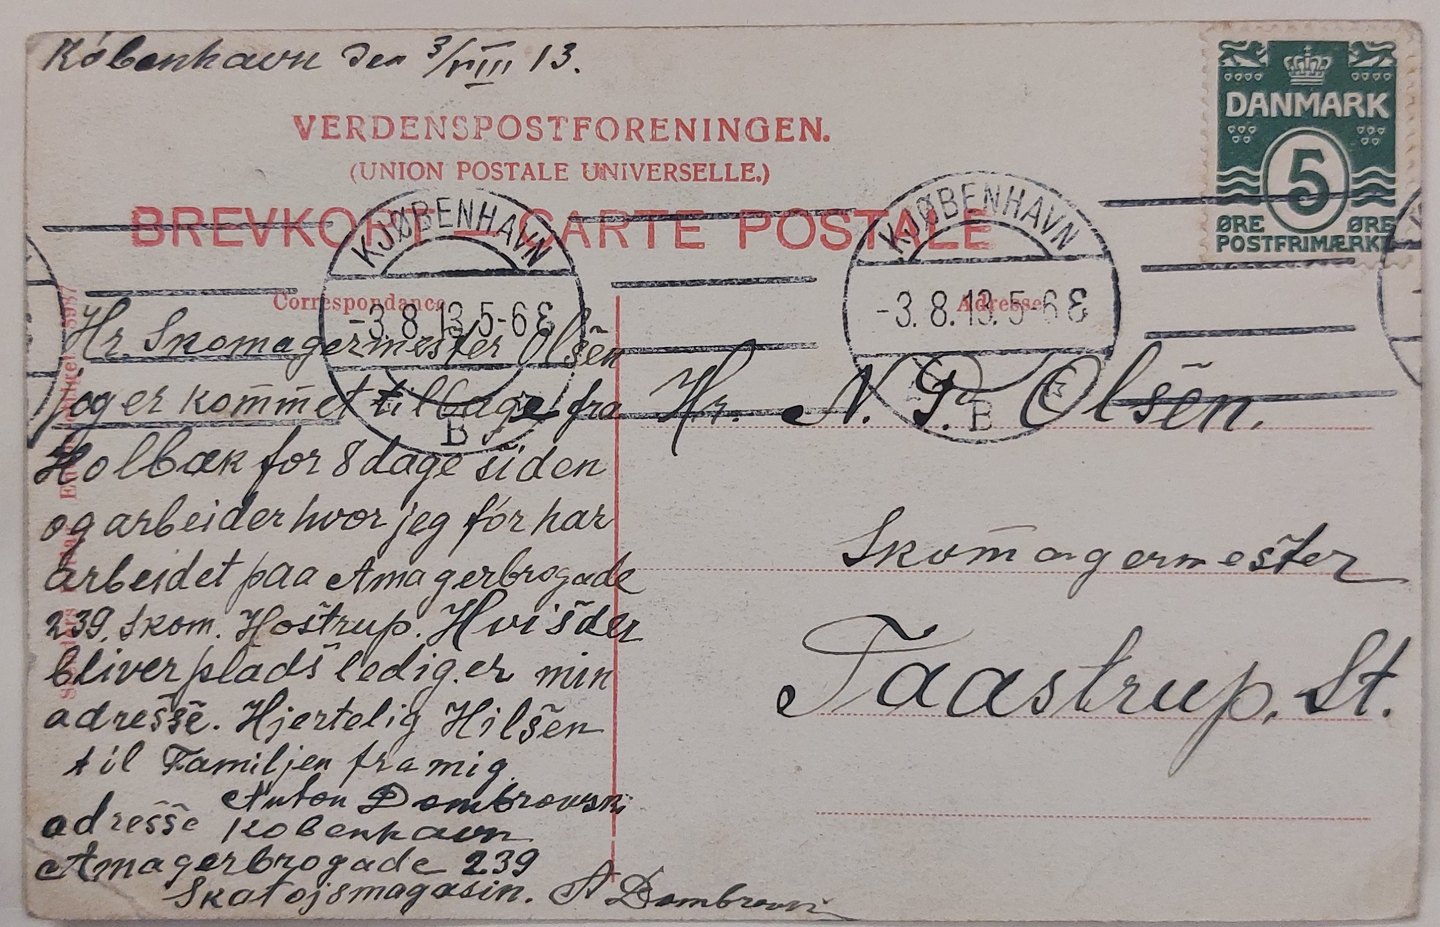 København den 3/VIII 13.
VERDENSPOSTFORENINGEN.
(UNION POSTALE UNIVERSELLE.)
BREVKORT — CARTE POSTALE
DANMARK
5
ØRE ØRE
POSTFRIMÆRKE
KJØBENHAVN
-3.8.13.5-6 E
B
KJØBENHAVN
-3.8.13.5-6 E
B
Correspondance
Adresse
Hr. Skomagermester Olsen
jeg er kommet tilbage fra
Holbæk for 8 dage siden
og arbeider hvor jeg før har
arbeidet paa Amagerbrogade
239. Skom. Hostrup. Hvis der
bliver plads ledig. er min
adresse. Hjertelig Hilsen
til Familjen fra mig
Anton Dombrovski
adresse København
Amagerbrogade 239
Skotøjsmagasin. A Dombrovski
Hr. N. P. Olsen.
Skomagermester
Taastrup. St.